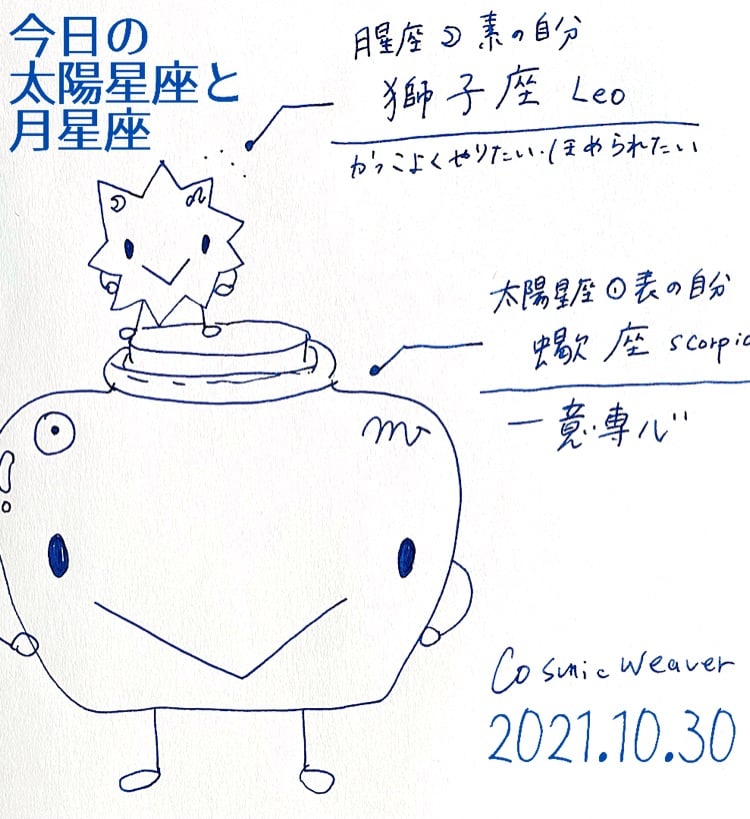 今日の
太陽星座と
月星座
月星座☽素の自分
獅子座 Leo
かっこよくやりたい・ほめられたい
☽ ♌
太陽星座☉表の自分
蝎座 scorpio
一意専心
☉ ♏
Cosmic Weaver
2021.10.30